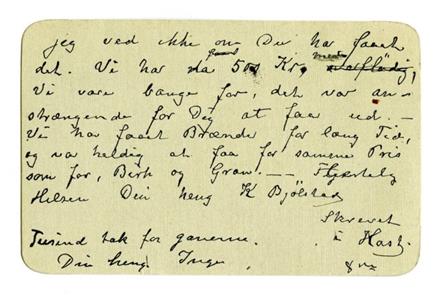 jeg ved ikke om Du har faaet
det. Vi har da faaet 50 Kr. med
Vi vare bange for, det var an-
strængende for Dig at faa ud. —
Vi har faaet Brænde for lang Tid,
og var heldig at faa for samme Pris
som før, Birk og Gran. — Hjertelig
Hilsen Din heng K Bjølstad
Skrevet
i Hast.
Tusind tak for gaverne.
Din heng. Inga